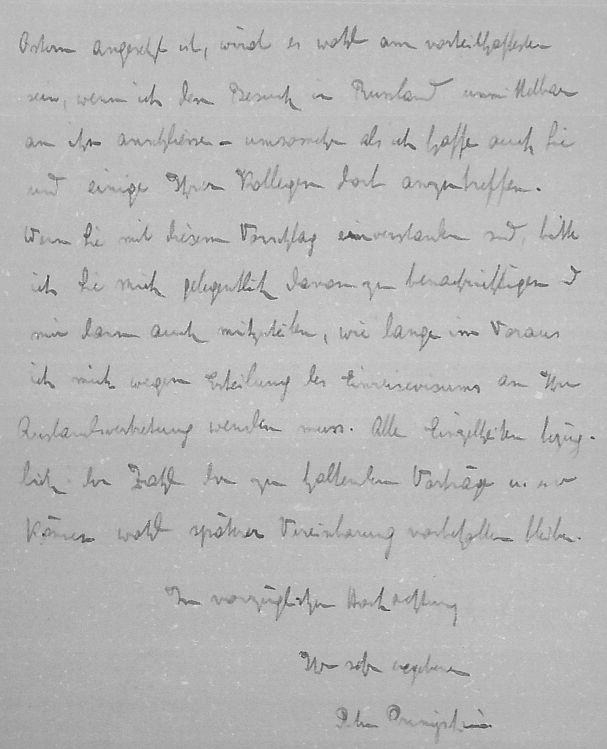 Ostern angesetzt ist, wird es wohl am vorteilhaftesten
sein, wenn ich den Besuch in Russland unmittelbar
an ihn anschliesse - umsomehr als ich hoffe auch Sie
und einige Ihrer Kollegen dort anzutreffen.
Wenn Sie mit diesem Vorschlag einverstanden sind, bitte
ich Sie mich gelegentlich davon zu benachrichtigen u
mir dann auch mitzuteilen, wie lange im Voraus
ich mich wegen Erteilung des Einreisevisums an Ihre
Auslandsvertretung wenden muss. Alle Einzelheiten bezüg-
lich der Zahl der zu haltenden Vorträge u.
können wohl späterer Vereinbarung vorbehalten bleiben.
In vorzüglicher Hochachtung
Ihr sehr ergebener
Peter Pringsheim